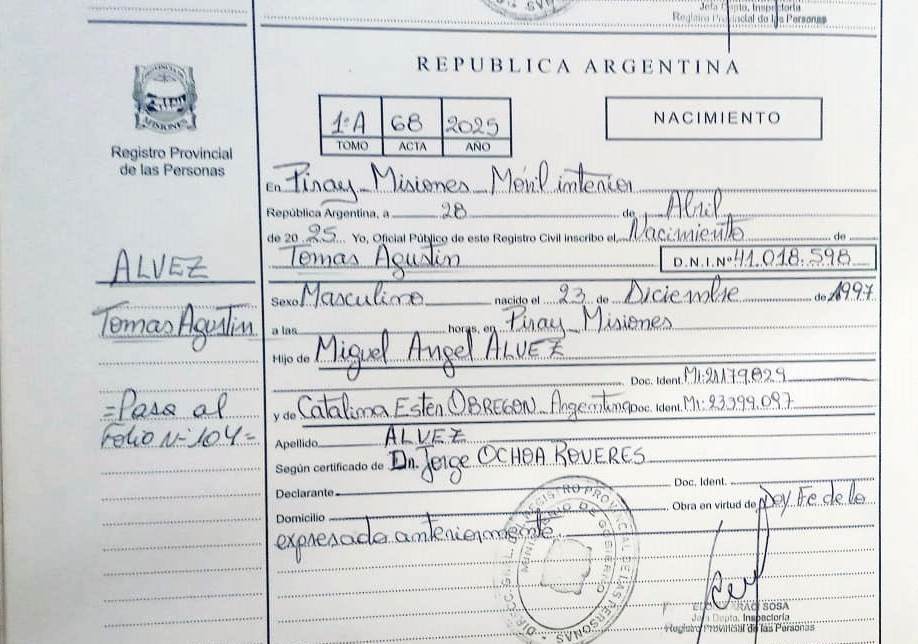 Jefa Dpto. Inspectoria
Registro Provincial de las Personas
REPUBLICA ARGENTINA
PROVINCIA DE
MISIONES
Registro Provincial
de las Personas
1ºA 68 2025
TOMO ACTA AÑO
NACIMIENTO
En Piray - Misiones - Móvil interior
República Argentina, a 28 de Abril
de 2025 Yo, Oficial Público de este Registro Civil inscribo el Nacimiento de
Tomas Agustin D.N.I.Nº 41.018.598
Sexo Masculino nacido el 23 de Diciembre de 1997
a las horas, en Piray - Misiones
Hijo de Miguel Angel ALVEZ
Doc. Ident. MI: 21179.829
y de Catalina Ester OBREGON - Argentina Doc. Ident. MI: 23399.097
Apellido ALVEZ
Según certificado de Dr. Jorge OCHOA ROVERES
Declarante Doc. Ident.
Domicilio Obra en virtud de Ley Fe de lo
expresado anteriormente
ALVEZ
Tomas Agustin
=Pasa al
Folio Nº 104=
SOSA
Jefa Depto. Inspectoria
Registro Provincial de las Personas